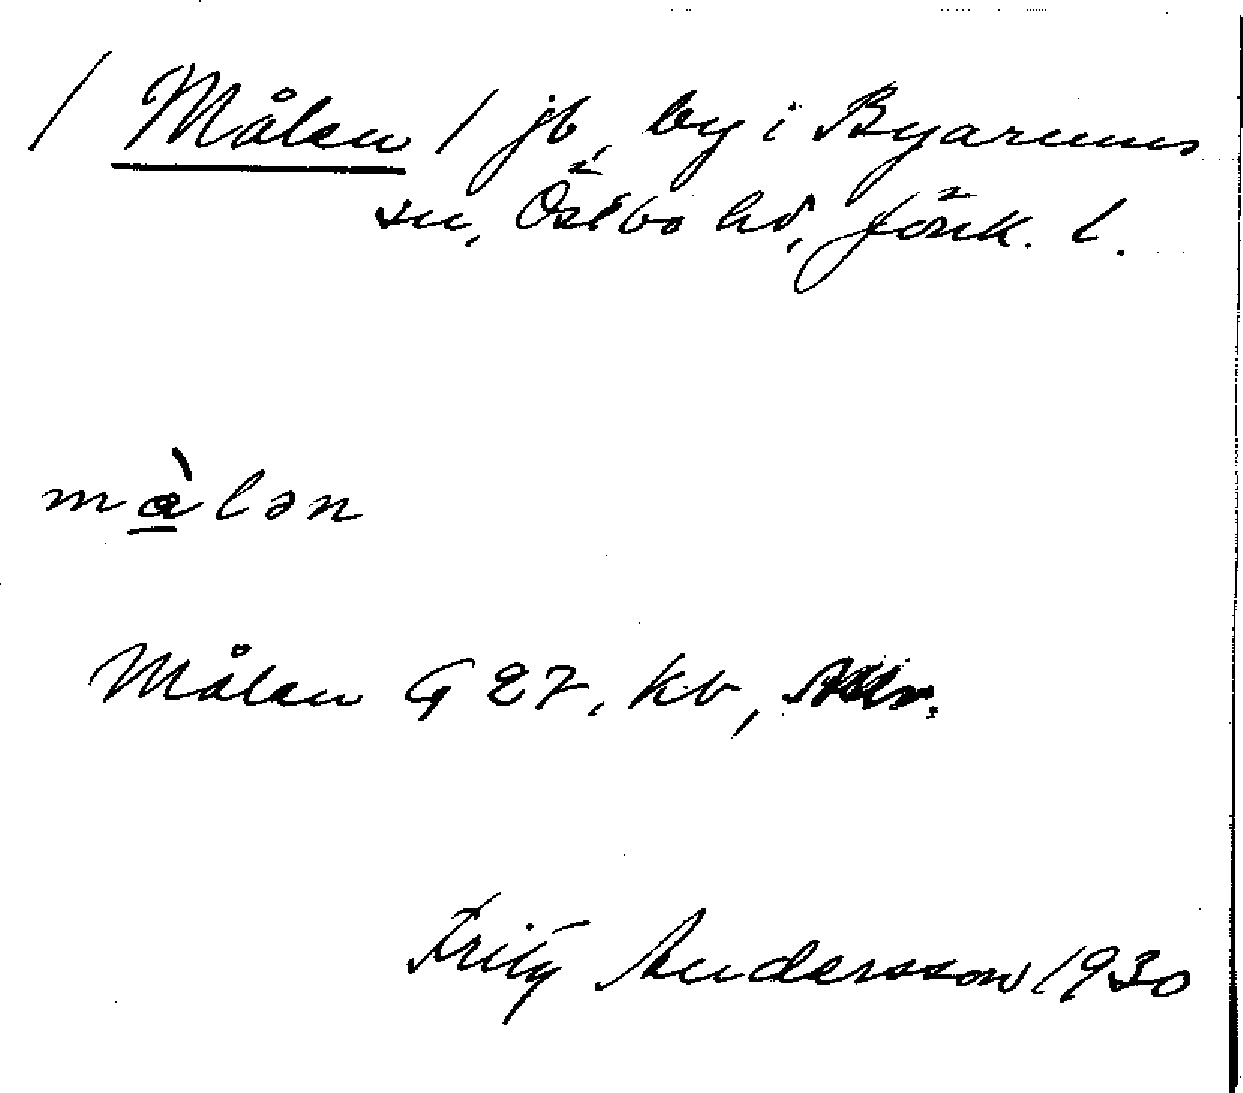 / Målen / jb, by i Byarums
sn, Östbo hd, Jönk. l.
màlən
Målen G 27, kb,
Fritz Andersson 1930